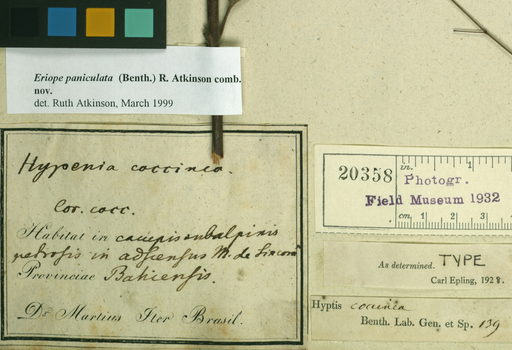 Eriope paniculata (Benth.) R. Atkinson comb.
nov.
det. Ruth Atkinson, March 1999
Hypenia coccinea.
Cor. cocc.
Habitat in campis subalpinis
petrosis in adscensus M. de Sincorá
Provinciae Bahiensis.
Dr Martius Iter Brasil.
20358
in. 1
Photogr.
Field Museum 1932
cm. 1 2 3
As determined. TYPE
Carl Epling, 1928.
Hyptis coccinea
Benth. Lab. Gen. et Sp. 139